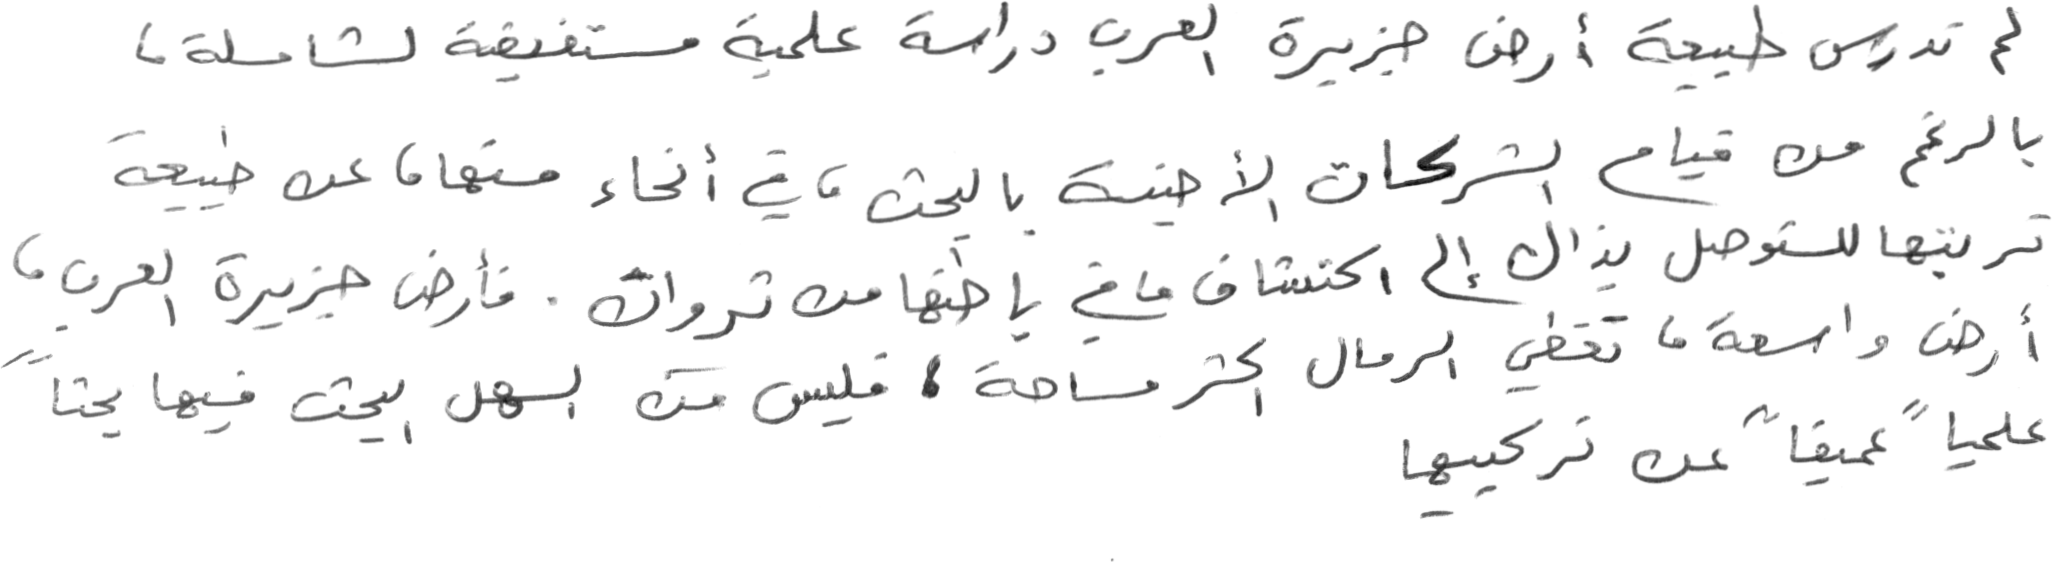 لم تدرس طبيعة أرض جزيرة العرب دراسة علمية مستفيضة لشاملة،
بالرغم من قيام الشركات الأجنبية بالبحث، في أنحاء منها، عن طبيعة
تربتها للتوصل بذلك إلى اكتشاف ما في باطنها من ثروات. فأرض جزيرة العرب،
أرض واسعة، تغطي الرمال اكثر مساحة، فليس من السهل البحث فيها بحثاً
علمياً عميقاً عن تركيبها